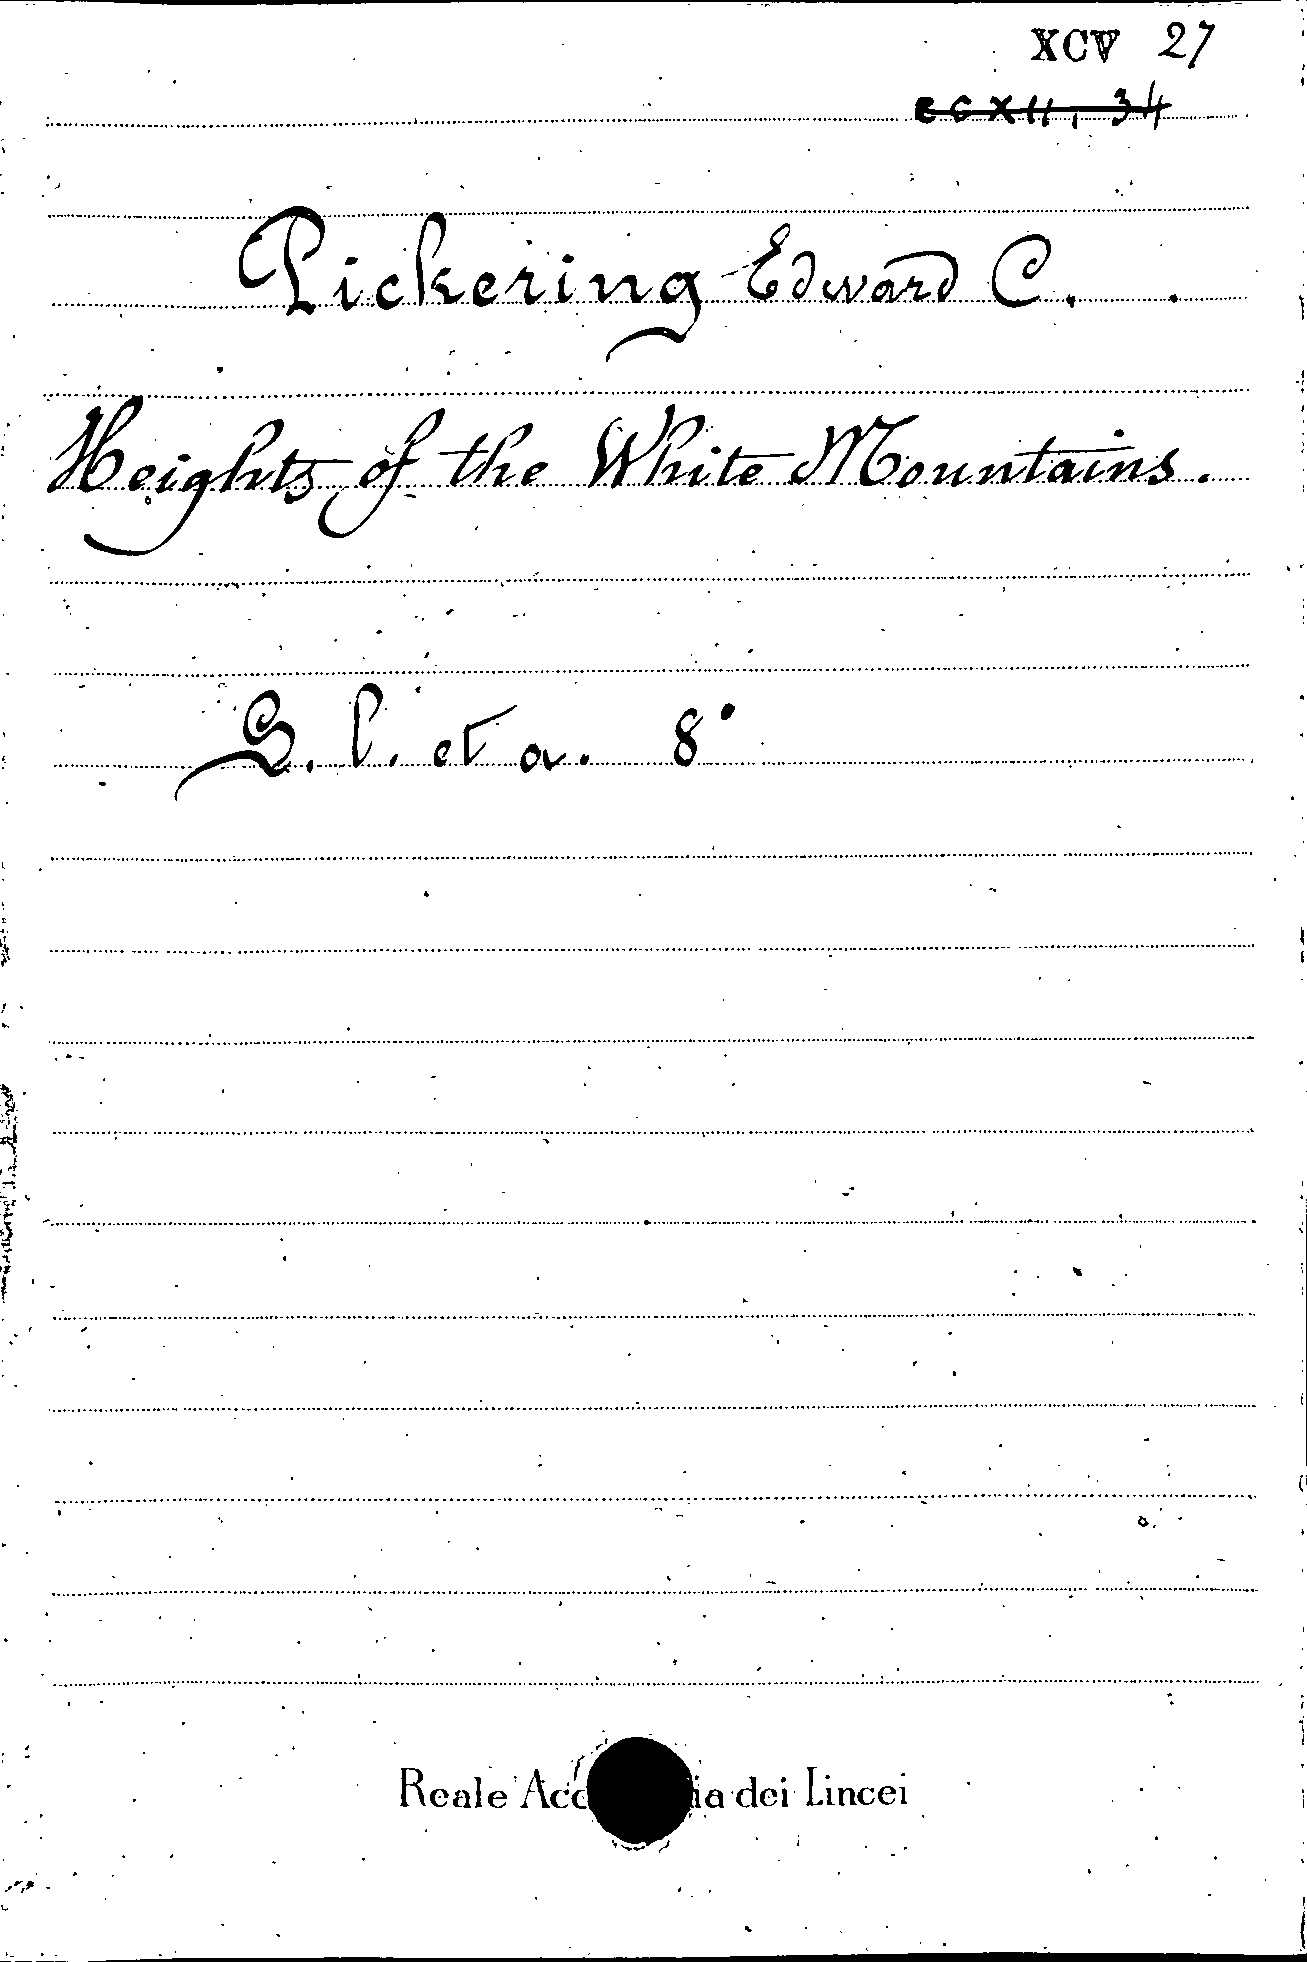 XCV 27
CCXII, 34
Pickering Edward C.
Heights of the White Mountains.
S. l. et a. 8°
Reale Acc ia dei Lincei